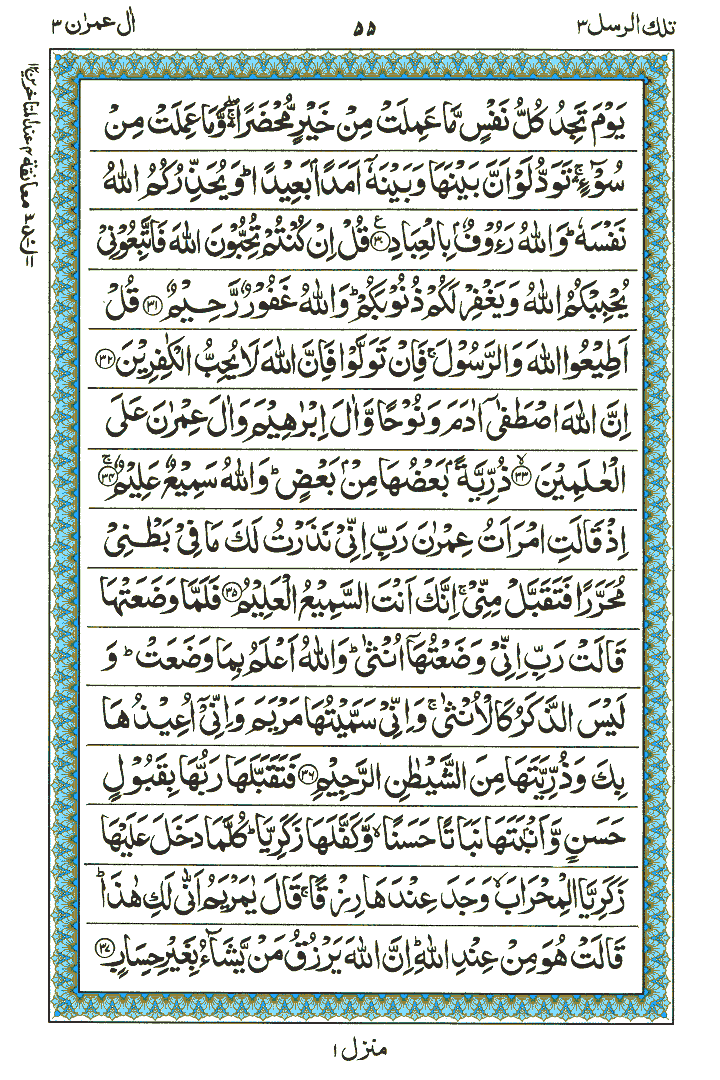 تلك الرسل ٣
۵۵
اٰل عمرٰن ٣
يَوْمَ تَجِدُ كُلُّ نَفْسٍ مَّا عَمِلَتْ مِنْ خَيْرٍ مُّحْضَرًا ۛۖۚ وَّمَا عَمِلَتْ مِنْ
سُوْٓءٍ ۛۚ تَوَدُّ لَوْ اَنَّ بَيْنَهَا وَبَيْنَهٗٓ اَمَدًاۢ بَعِيْدًا ؕ وَيُحَذِّرُكُمُ اللّٰهُ
نَفْسَهٗ ؕ وَاللّٰهُ رَءُوْفٌۢ بِالْعِبَادِ ۧ ﴿٣٠﴾ قُلْ اِنْ كُنْتُمْ تُحِبُّوْنَ اللّٰهَ فَاتَّبِعُوْنِيْ
يُحْبِبْكُمُ اللّٰهُ وَيَغْفِرْ لَكُمْ ذُنُوْبَكُمْ ؕ وَاللّٰهُ غَفُوْرٌ رَّحِيْمٌ ﴿٣١﴾ قُلْ
اَطِيْعُوا اللّٰهَ وَالرَّسُوْلَ ۚ فَاِنْ تَوَلَّوْا فَاِنَّ اللّٰهَ لَا يُحِبُّ الْكٰفِرِيْنَ ﴿٣٢﴾
اِنَّ اللّٰهَ اصْطَفٰٓى اٰدَمَ وَنُوْحًا وَّاٰلَ اِبْرٰهِيْمَ وَاٰلَ عِمْرٰنَ عَلَى
الْعٰلَمِيْنَ ۙ ﴿٣٣﴾ ذُرِّيَّةًۢ بَعْضُهَا مِنْۢ بَعْضٍ ؕ وَاللّٰهُ سَمِيْعٌ عَلِيْمٌ ۚ ﴿٣٤﴾
اِذْ قَالَتِ امْرَاَتُ عِمْرٰنَ رَبِّ اِنِّيْ نَذَرْتُ لَكَ مَا فِيْ بَطْنِيْ
مُحَرَّرًا فَتَقَبَّلْ مِنِّيْ ۚ اِنَّكَ اَنْتَ السَّمِيْعُ الْعَلِيْمُ ﴿٣٥﴾ فَلَمَّا وَضَعَتْهَا
قَالَتْ رَبِّ اِنِّيْ وَضَعْتُهَآ اُنْثٰى ؕ وَاللّٰهُ اَعْلَمُ بِمَا وَضَعَتْ ؕ وَ
لَيْسَ الذَّكَرُ كَالْاُنْثٰى ۚ وَاِنِّيْ سَمَّيْتُهَا مَرْيَمَ وَاِنِّيْٓ اُعِيْذُهَا
بِكَ وَذُرِّيَّتَهَا مِنَ الشَّيْطٰنِ الرَّجِيْمِ ﴿٣٦﴾ فَتَقَبَّلَهَا رَبُّهَا بِقَبُوْلٍ
حَسَنٍ وَّاَنْۢبَتَهَا نَبَاتًا حَسَنًا ۙ وَّكَفَّلَهَا زَكَرِيَّا ؕ كُلَّمَا دَخَلَ عَلَيْهَا
زَكَرِيَّا الْمِحْرَابَ ۙ وَجَدَ عِنْدَهَا رِزْقًا ۚ قَالَ يٰمَرْيَمُ اَنّٰى لَكِ هٰذَا ؕ
قَالَتْ هُوَ مِنْ عِنْدِ اللّٰهِ ؕ اِنَّ اللّٰهَ يَرْزُقُ مَنْ يَّشَآءُ بِغَيْرِ حِسَابٍ ﴿٣٧﴾
منزل ١